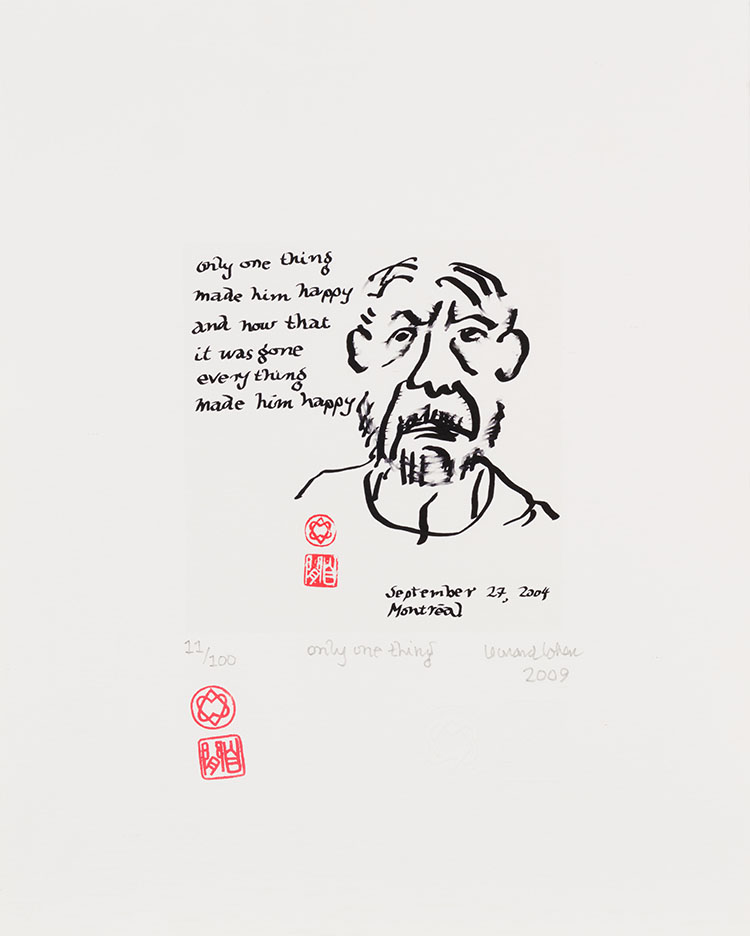 only one thing
made him happy
and now that
it was gone
everything
made him happy
September 27, 2004
Montréal
11/100 only one thing Leonard Cohen
2009